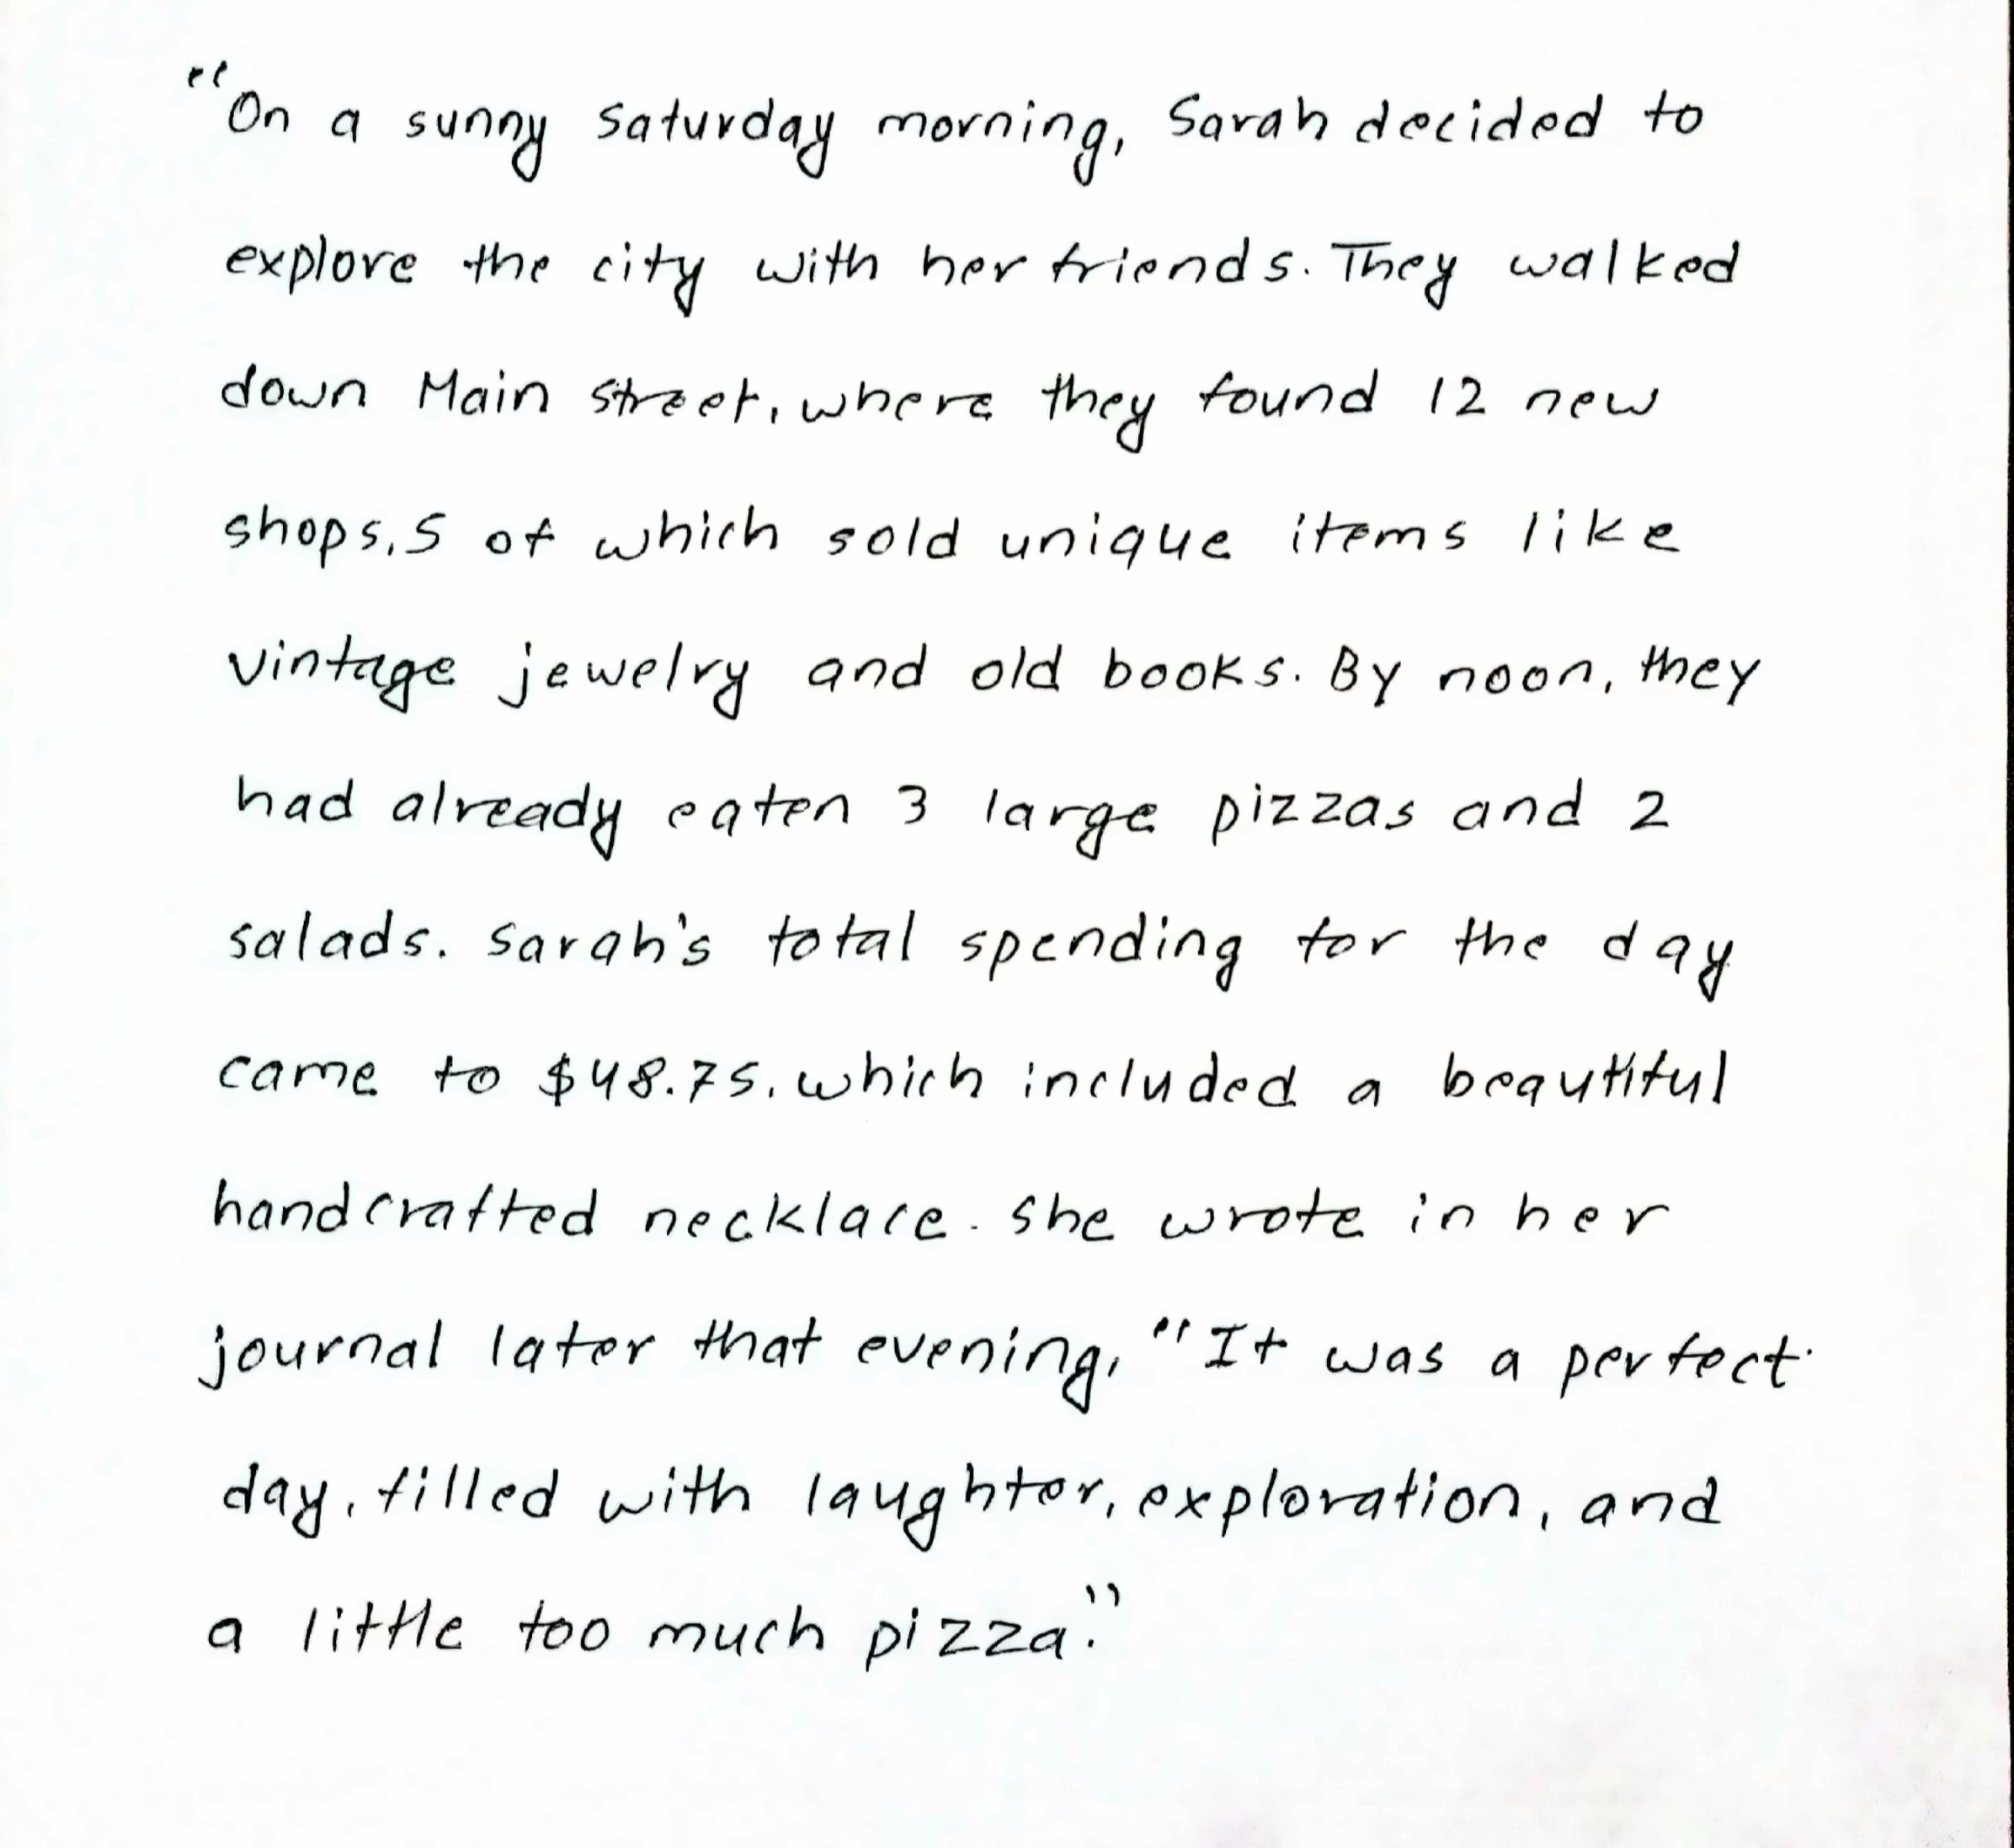 "On a sunny Saturday morning, Sarah decided to
explore the city with her friends. They walked
down Main Street, where they found 12 new
shops, 5 of which sold unique items like
vintage jewelry and old books. By noon, they
had already eaten 3 large pizzas and 2
salads. Sarah's total spending for the day
came to $48.75, which included a beautiful
handcrafted necklace. She wrote in her
journal later that evening, "It was a perfect
day, filled with laughter, exploration, and
a little too much pizza."